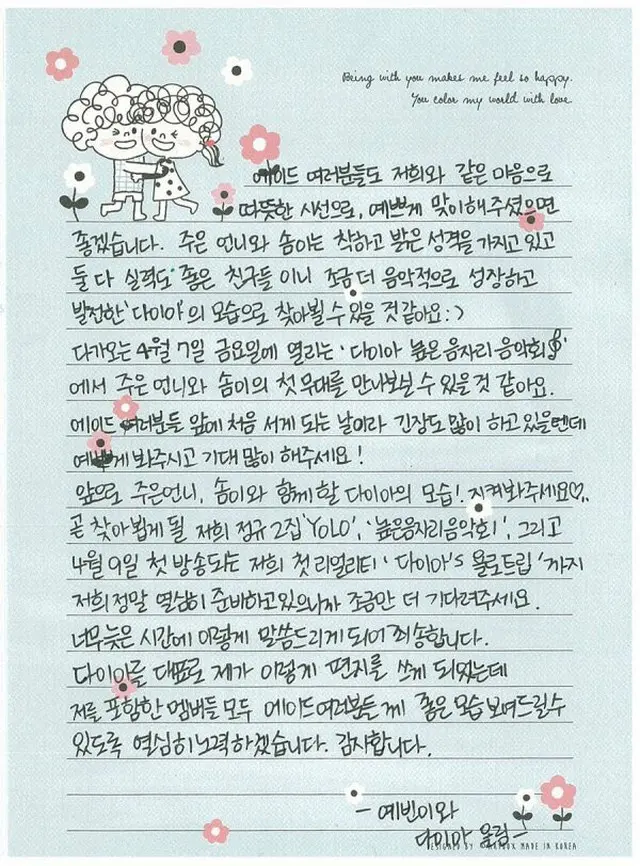 Being with you makes me feel so happy.
You color my world with love
에이드 여러분들도 저희와 같은 마음으로
따뜻한 시선으로, 예쁘게 맞이해주셨으면
좋겠습니다. 주은 언니와 솜이는 착하고 밝은 성격을 가지고 있고
둘 다 실력도 좋은 친구들 이니 조금 더 음악적으로 성장하고
발전한 '다이아'의 모습으로 찾아뵐 수 있을 것 같아요:)
다가오는 4월 7일 금요일에 열리는 '다이아 높은 음자리 음악회'
에서 주은 언니와 솜이의 첫 무대를 만나보실 수 있을것 같아요.
에이드 여러분들 앞에 처음 서게 되는 날이라 긴장도 많이 하고 있을텐데
예쁘게 봐주시고 기대 많이 해주세요!
앞으로 주은언니, 솜이와 함께 할 다이아의 모습! 지켜봐주세요♡..
곧 찾아뵙게 될 저희 정규 2집 'YOLO', '높은음자리음악회', 그리고
4월 9일 첫 방송되는 저희 첫 리얼리티 '다이아's 욜로트립'까지
저희 정말 열심히 준비하고있으니까 조금만 더 기다려주세요.
너무늦은 시간에 이렇게 말씀드리게 되어 죄송합니다.
다이아를 대표로 제가 이렇게 편지를 쓰게 되었는데
저를 포함한 멤버들 모두 에이드여러분들께 좋은 모습 보여드릴수
있도록 열심히노력하겠습니다. 감사합니다.
- 예빈이와
다이아 올림 -
DESIGNED BY ARTBOX MADE IN KOREA